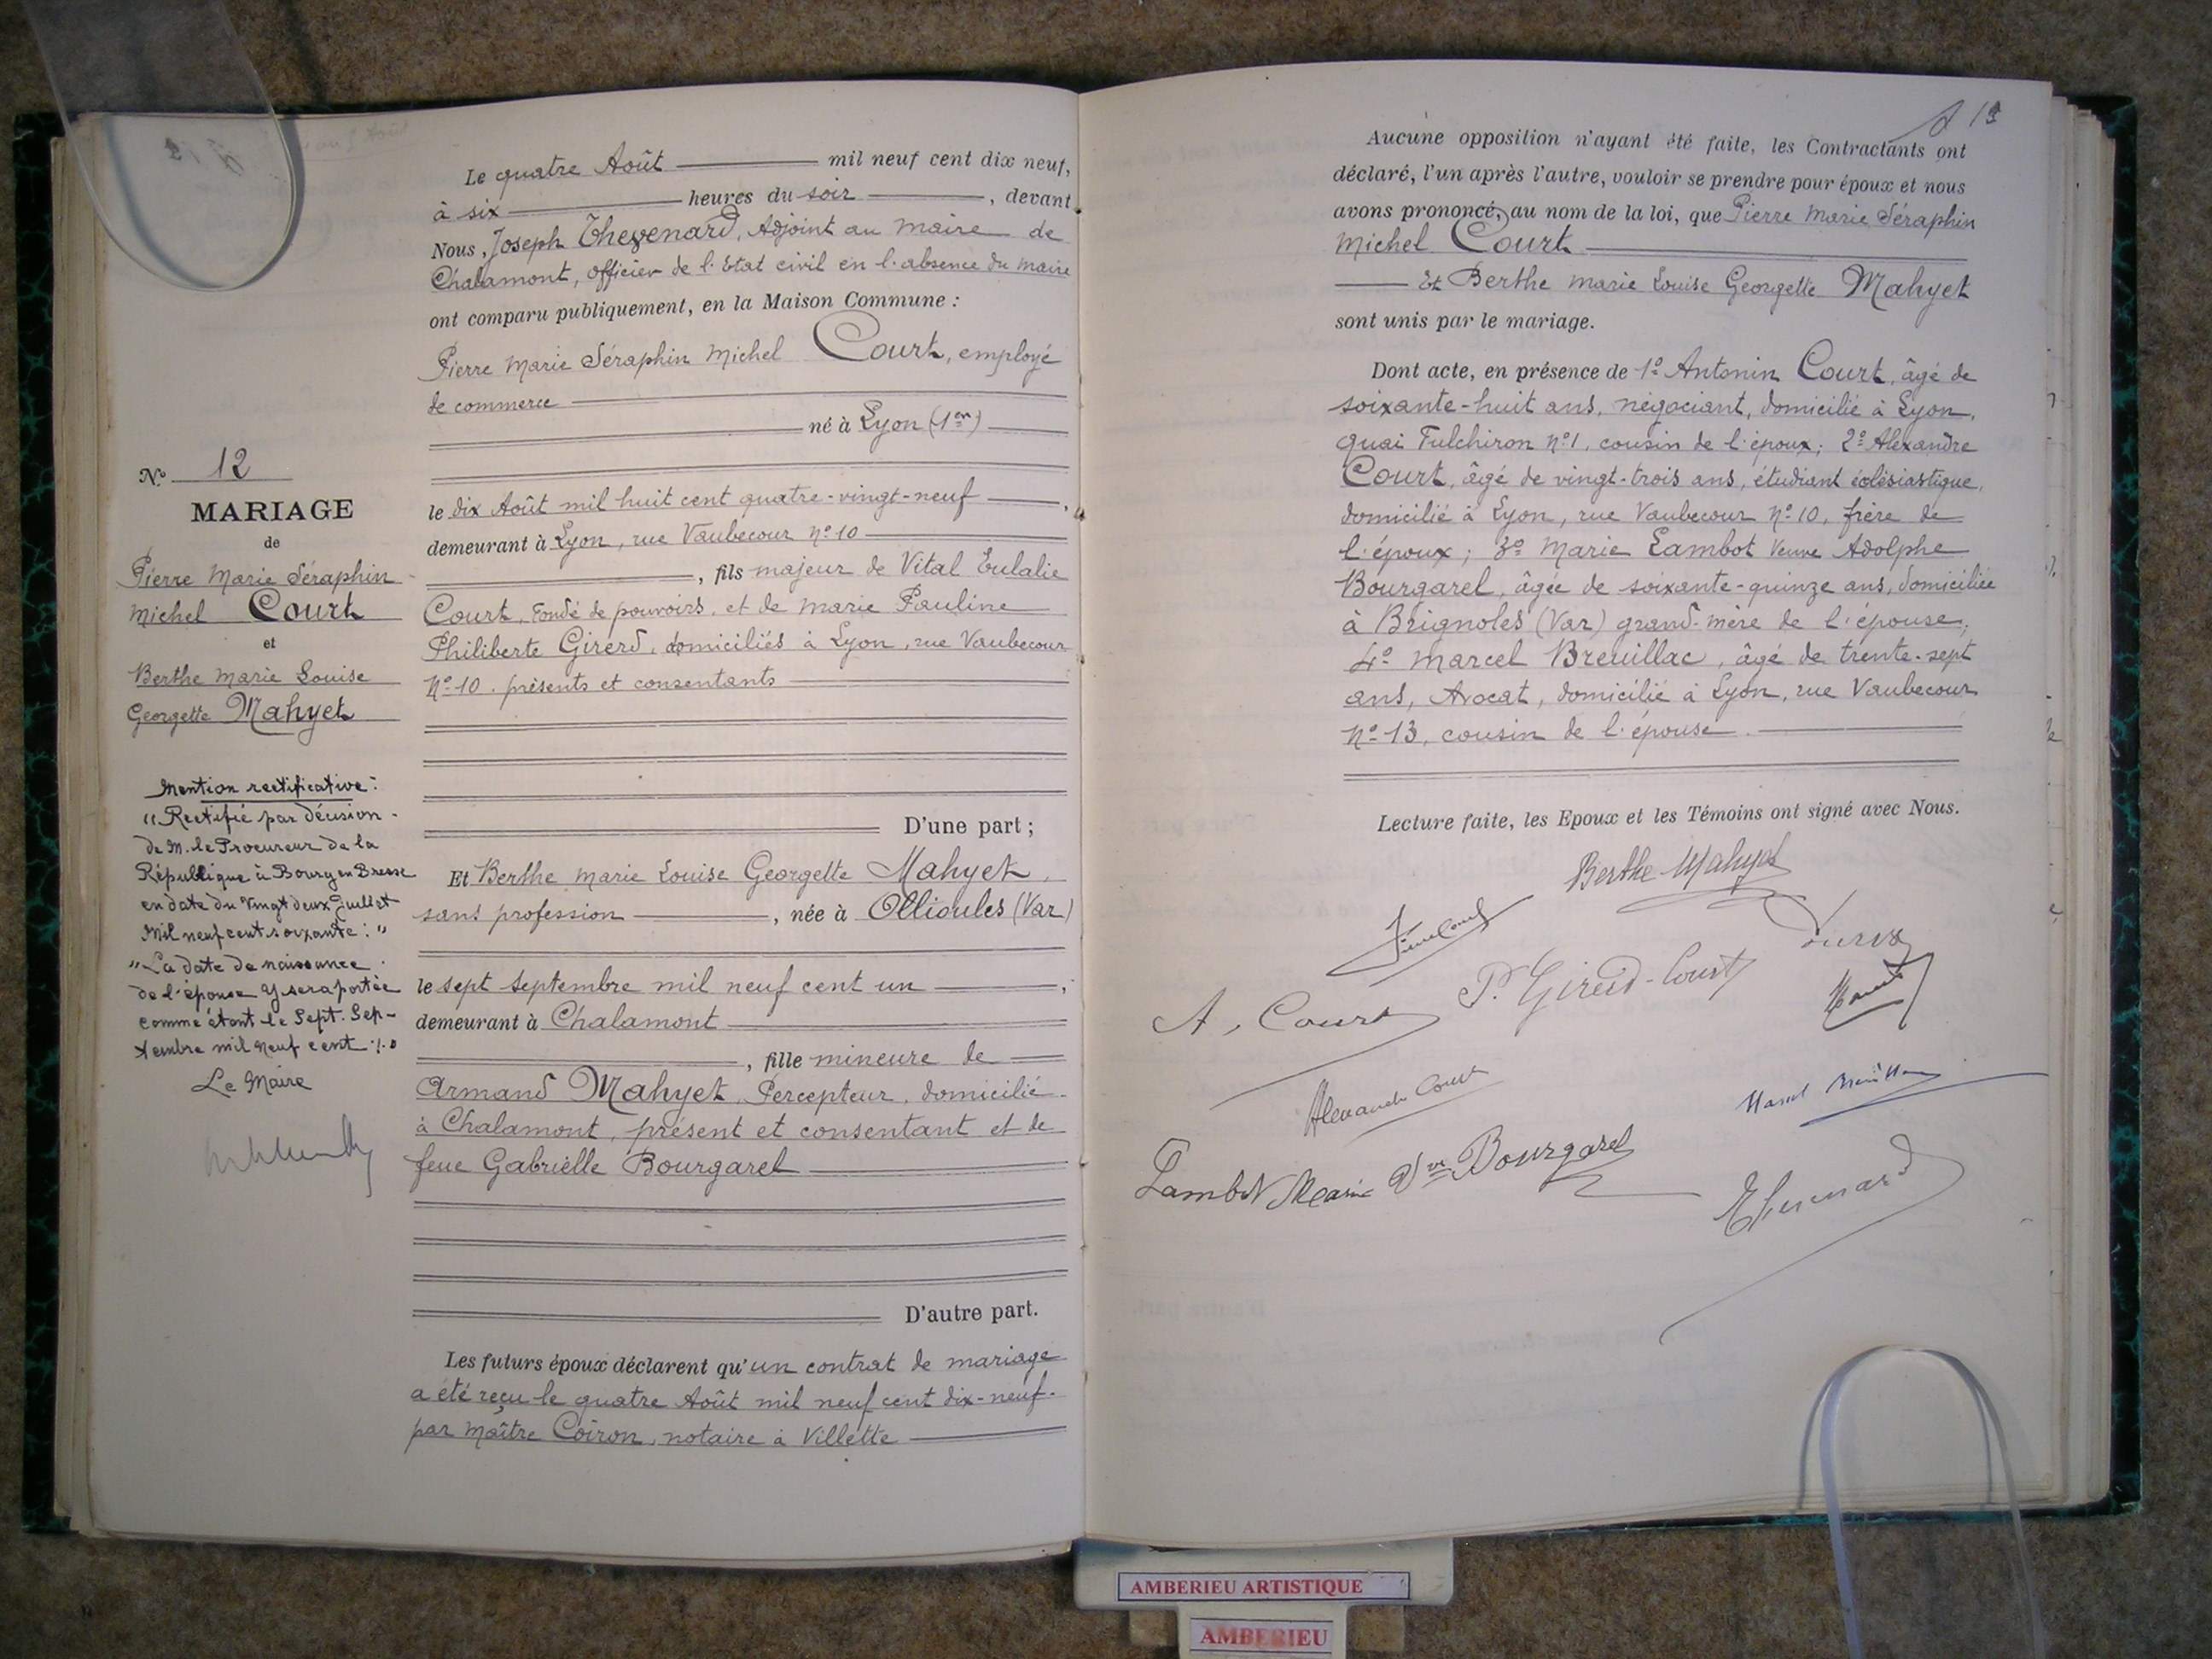 N° 12
MARIAGE
de
Pierre Marie Séraphin
Michel Court
et
Berthe Marie Louise
Georgette Mahyet
Mention rectificative :
"Rectifié par décision
de M. le Procureur de la
République à Bourg en Bresse
en date du Vingt deux Juillet
Mil neuf cent soixante : "
"La date de naissance
de l'épouse y sera portée
comme étant le Sept. Sep-
tembre mil neuf cent ./."
Le Maire
Le quatre Août mil neuf cent dix neuf,
à six heures du soir, devant
Nous, Joseph Thevenard, Adjoint au Maire de
Chalamont, officier de l'Etat civil en l'absence du Maire
ont comparu publiquement, en la Maison Commune :
Pierre Marie Séraphin Michel Court, employé
de commerce
né à Lyon (1er)
le dix Août mil huit cent quatre-vingt-neuf,
demeurant à Lyon, rue Vaubecour N° 10
, fils majeur de Vital Eulalie
Court, Fondé de pouvoirs, et de Marie Pauline
Philiberte Girerd, domiciliés à Lyon, rue Vaubecour
N° 10. présents et consentants
D'une part ;
Et Berthe Marie Louise Georgette Mahyet,
sans profession, née à Ollioules (Var)
le sept septembre mil neuf cent un,
demeurant à Chalamont
, fille mineure de
Armand Mahyet, Percepteur, domicilié
à Chalamont, présent et consentant et de
feue Gabrielle Bourgarel
D'autre part.
Les futurs époux déclarent qu'un contrat de mariage
a été reçu le quatre Août mil neuf cent dix-neuf
par Maître Coiron, notaire à Villette
Aucune opposition n'ayant été faite, les Contractants ont
déclaré, l'un après l'autre, vouloir se prendre pour époux et nous
avons prononcé, au nom de la loi, que Pierre Marie Séraphin
Michel Court
Et Berthe Marie Louise Georgette Mahyet
sont unis par le mariage.
Dont acte, en présence de 1° Antonin Court, âgé de
soixante-huit ans, négociant, domicilié à Lyon,
quai Fulchiron N° 1, cousin de l'époux ; 2° Alexandre
Court, âgé de vingt-trois ans, étudiant éclésiastique,
domicilié à Lyon, rue Vaubecour N° 10, frère de
l'époux ; 3° Marie Lambot Veuve Adolphe
Bourgarel, âgée de soixante-quinze ans, domiciliée
à Brignoles (Var) grand-mère de l'épouse ;
4° Marcel Breuillac, âgé de trente-sept
ans, Avocat, domicilié à Lyon, rue Vaubecour
N° 13, cousin de l'épouse.
Lecture faite, les Epoux et les Témoins ont signé avec Nous.
Berthe Mahyet
A. Court P. Girerd-Court
Alexandre Court
Marcel Breuillac
Lambot Marie Vve Bourgarel
Thevenard
AMBERIEU ARTISTIQUE
AMBERIEU